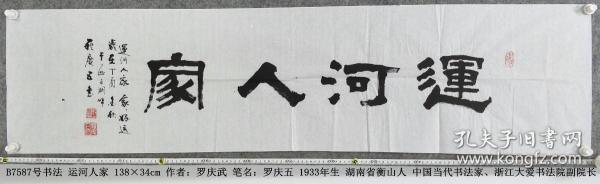 運河人家
運河人家 家好運
歲在丁酉
B7587号书法 运河人家 138×34cm 作者：罗庆武 笔名：罗庆五 1933年生 湖南省衡山人 中国当代书法家、浙江大爱书法院副院长
孔夫子旧书网